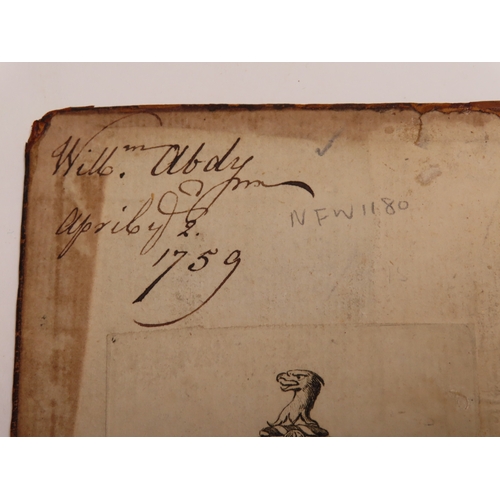 Will.m Abdy
April ye 2.
1759
NFW1180